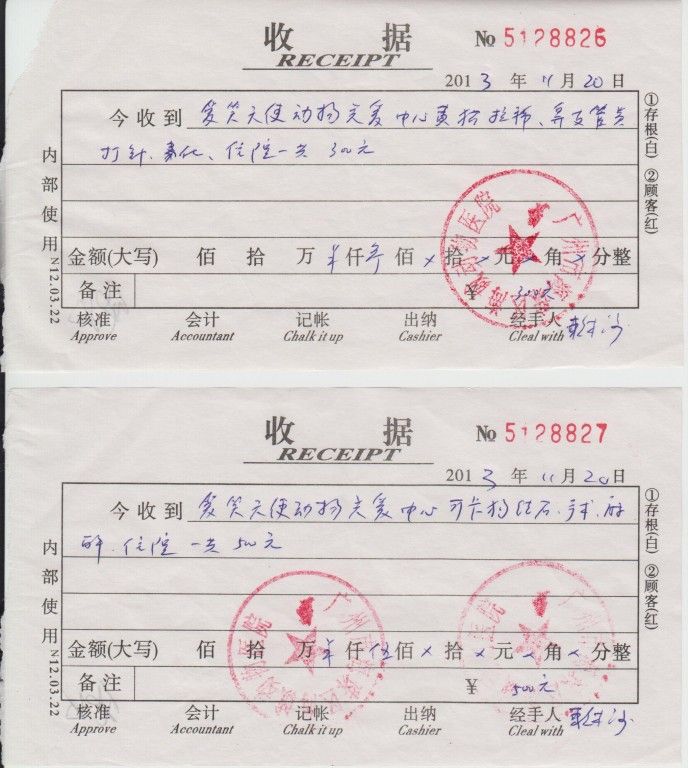 收 据
RECEIPT
No 5128826
2013 年 11 月 20 日
今收到 微笑天使动物关爱中心黄
打针、住院一共 300元
金额(大写) 佰 拾 万 仟 叁 佰 × 拾 × 元 × 角 × 分整
备注
¥ 300元
核准 会计 记帐 出纳 经手人
Approve Accountant Chalk it up Cashier Cleal with
①存根(白) ②顾客(红)
内部使用
N12.03.22
动物医院
广州市
收 据
RECEIPT
No 5128827
2013 年 11 月 20 日
今收到 微笑天使动物关爱中心 可卡狗结石、手术、麻
醉、住院 一共 500元
金额(大写) 佰 拾 万 仟 伍 佰 × 拾 × 元 × 角 × 分整
备注
¥ 500元
核准 会计 记帐 出纳 经手人
Approve Accountant Chalk it up Cashier Cleal with
①存根(白) ②顾客(红)
内部使用
N12.03.22
广州市